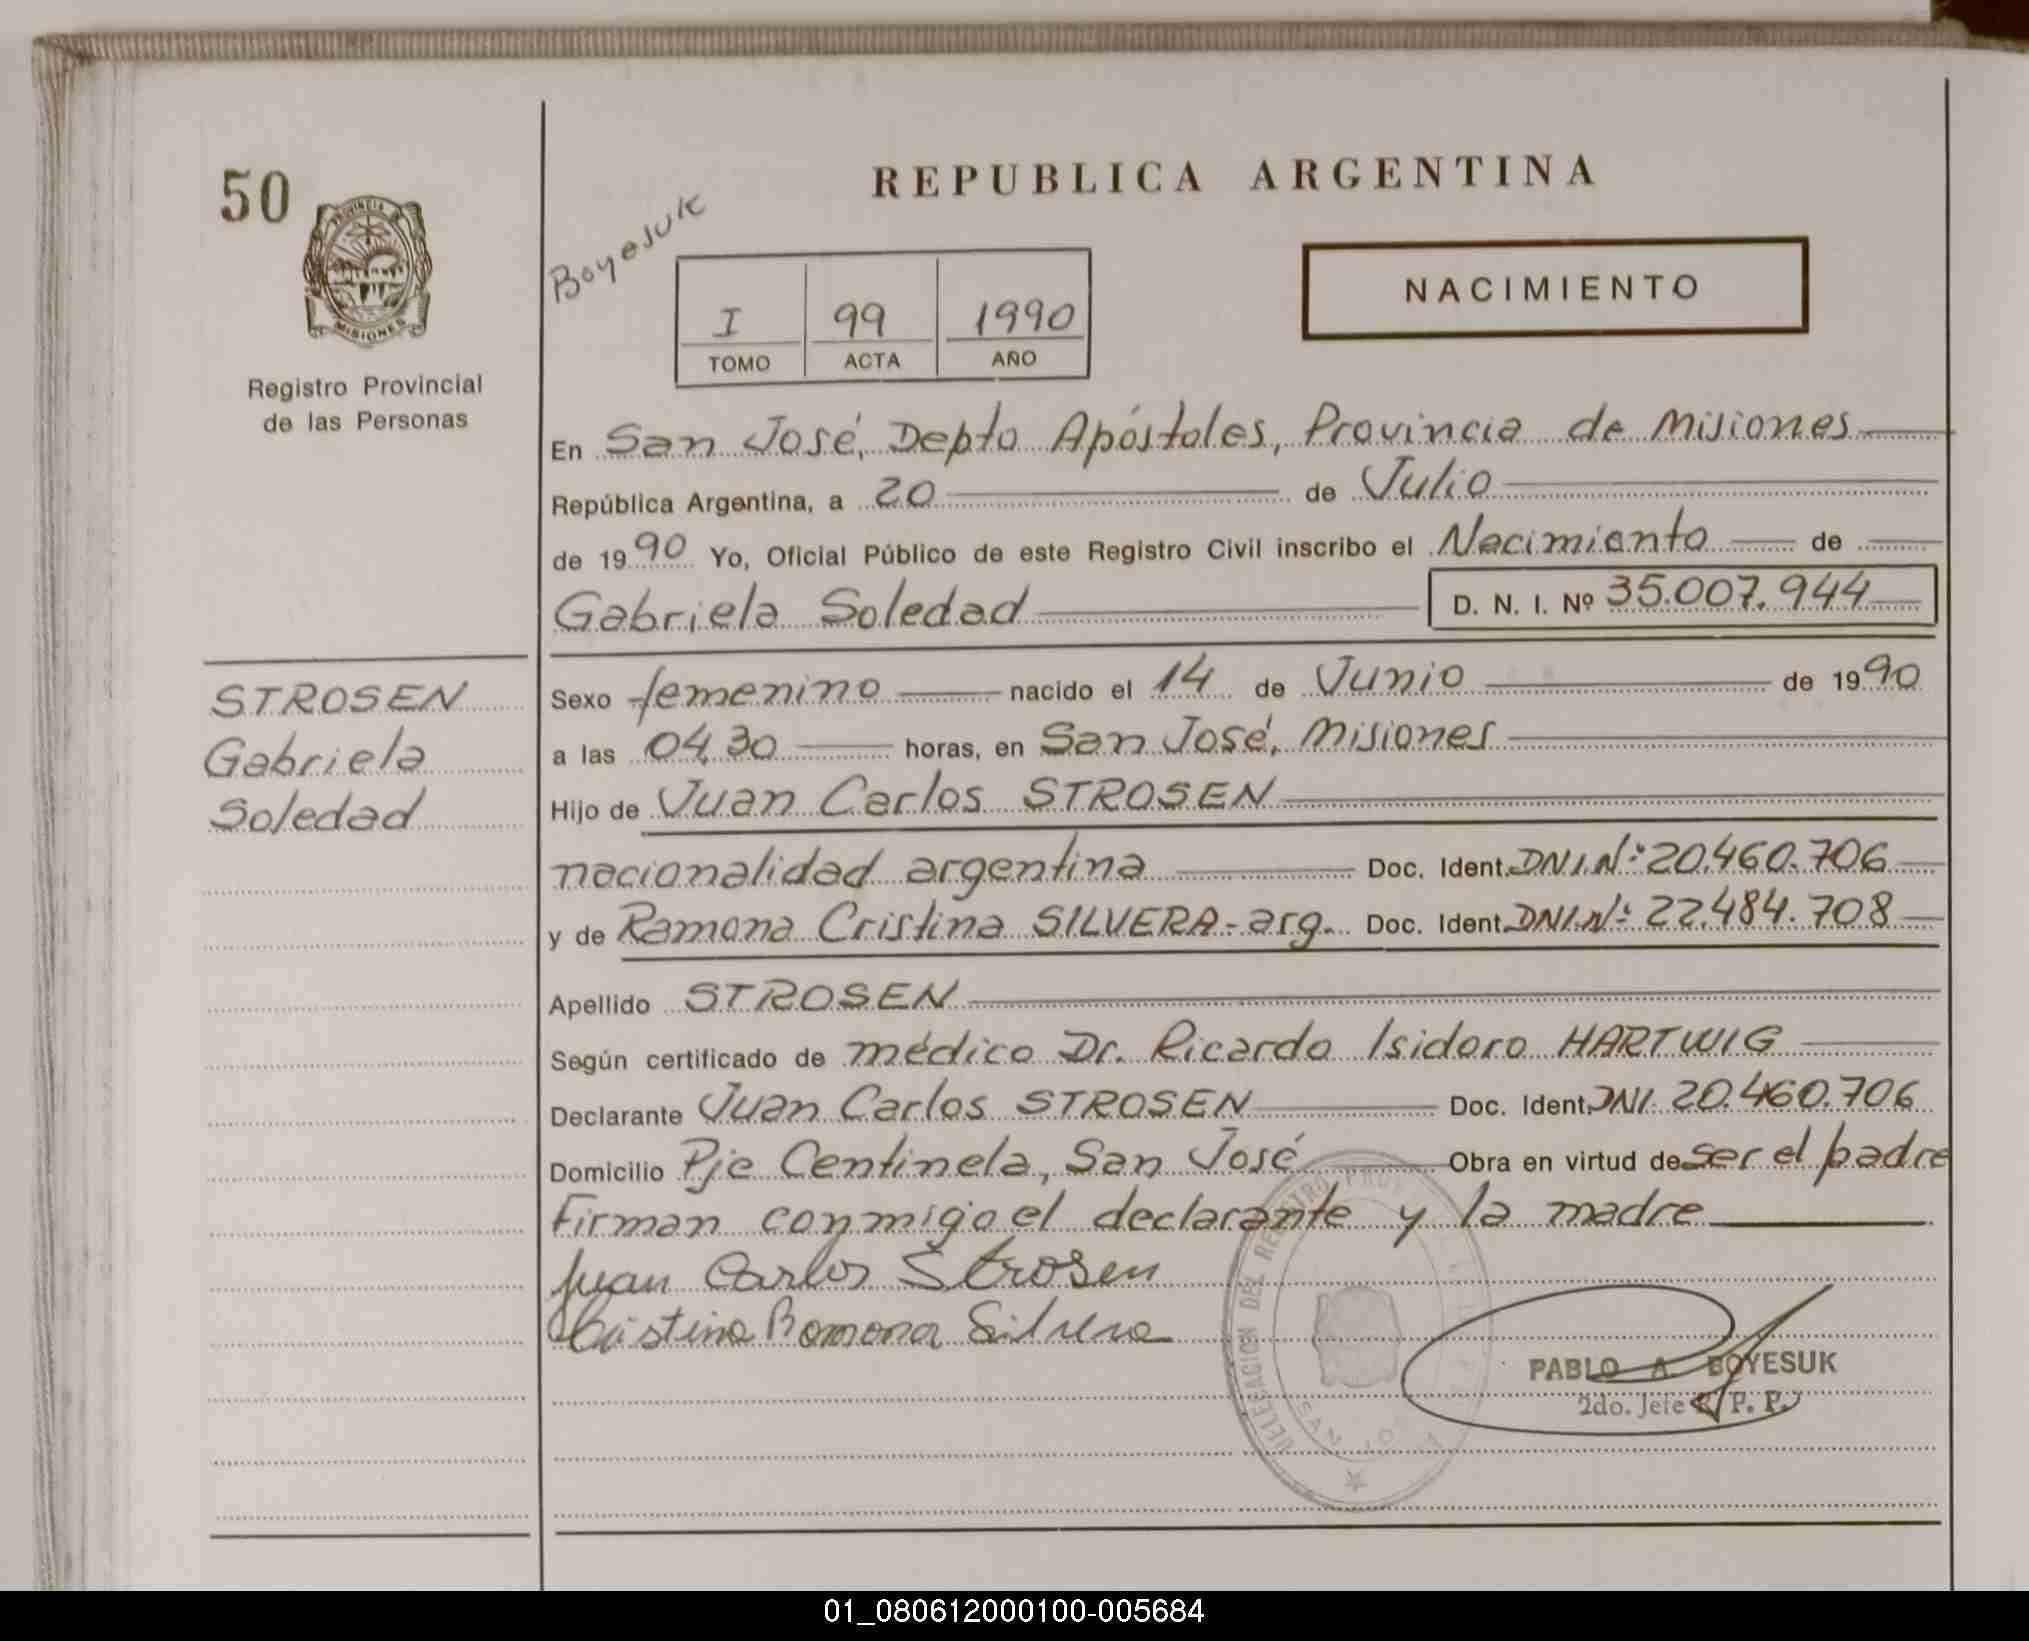 50
PROVINCIA DE
MISIONES
Registro Provincial
de las Personas
STROSEN
Gabriela
Soledad
REPUBLICA ARGENTINA
Boyesuk
I 99 1990
TOMO ACTA AÑO
NACIMIENTO
En San José, Depto Apóstoles, Provincia de Misiones
República Argentina, a 20 de Julio
de 1990 Yo, Oficial Público de este Registro Civil inscribo el Nacimiento de
Gabriela Soledad D. N. I. Nº 35.007.944
Sexo femenino nacido el 14 de Junio de 1990
a las 04,30 horas, en San José, Misiones
Hijo de Juan Carlos STROSEN
nacionalidad argentina Doc. Ident. DNI.Nº: 20.460.706
y de Ramona Cristina SILVERA - arg. Doc. Ident. DNI.Nº: 22.484.708
Apellido STROSEN
Según certificado de médico Dr. Ricardo Isidoro HARTWIG
Declarante Juan Carlos STROSEN Doc. Ident. DNI. 20.460.706
Domicilio Pje Centinela, San José Obra en virtud de ser el padre
Firman conmigo el declarante y la madre
Juan Carlos Strosen
Cristina Ramona Silvera
DELEGACION DEL REGISTRO PROV
SAN JOSE
PABLO A. BOYESUK
2do. Jefe R. P. P.
01_080612000100-005684